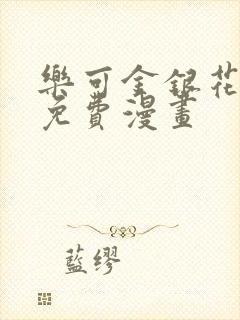 樂可金銀花
免費漫畫
藍繆